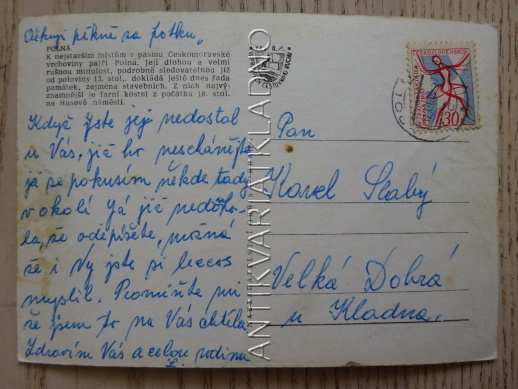 Děkuji pěkně za fotku,
POLNÁ
K nejstarším místům v pásmu Českomoravské
vrchoviny patří Polná. Její dlouhou a velmi
rušnou minulost, podrobně sledovatelnou již
od poloviny 13. stol., dokládá ještě dnes řada
památek, zejména stavebních. Z nich nejvý-
znamnější je farní kostel z počátku 18. stol.
na Husově náměstí.
Když jste jej nedostal
u Vás, již ho neschánějte
já se pokusím někde tady
v okolí Já již
la, že odepíšete, možná
že i Vy jste si leccos
myslil. Promiňte mi
že jsem to na Vás chtěla
Zdravím Vás a celou rodinu
ČESKOSLOVENSKO
30
Pan
Karel Slabý
Velká Dobrá
u Kladna.
ANTIKVARIAT KLADNO